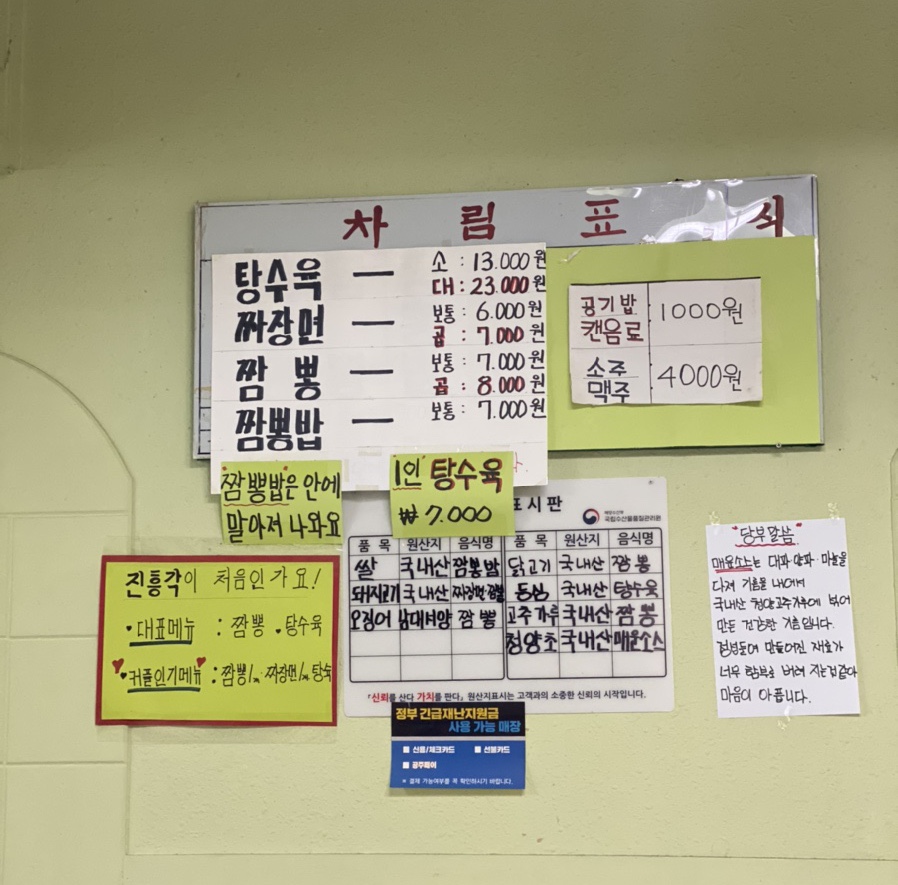 차림표 식
탕수육 — 소 : 13.000원
대 : 23.000원
짜장면 — 보통 : 6.000원
곱 : 7.000원
짬뽕 — 보통 : 7.000원
곱 : 8.000원
짬뽕밥 — 보통 : 7.000원
공기밥
캔음료
1000원
소주
맥주
4000원
"짬뽕밥"은 안에
말아져 나와요
1인 탕수육
₩ 7.000
표시판
국립수산물품질관리원
품목 원산지 음식명 품목 원산지 음식명
쌀 국내산 짬뽕밥 닭고기 국내산 짬뽕
돼지고기 국내산 짜장면·짬뽕 국내산 탕수육
오징어 남태평양 짬뽕 고추가루 국내산 짬뽕
청양초 국내산 매운소스
「신뢰를 산다 가치를 판다」 원산지표시는 고객과의 소중한 신뢰의 시작입니다.
진흥각이 처음인가요!
대표메뉴 : 짬뽕 · 탕수육
커플인기메뉴 : 짬뽕 짜장면 탕수
정부 긴급재난지원금
사용 가능 매장
신용/체크카드 선불카드
공주페이
※ 결제 가능여부를 꼭 확인하시기 바랍니다.
"당부말씀"
매운소스는 대파 양파 마늘을
다져 기름을 내어서
국내산 청양고추가루에 볶아
만든 건강한 기름입니다.
정성들여 만들어진 재료가
너무 함부로 버려지는것같아
마음이 아픕니다.